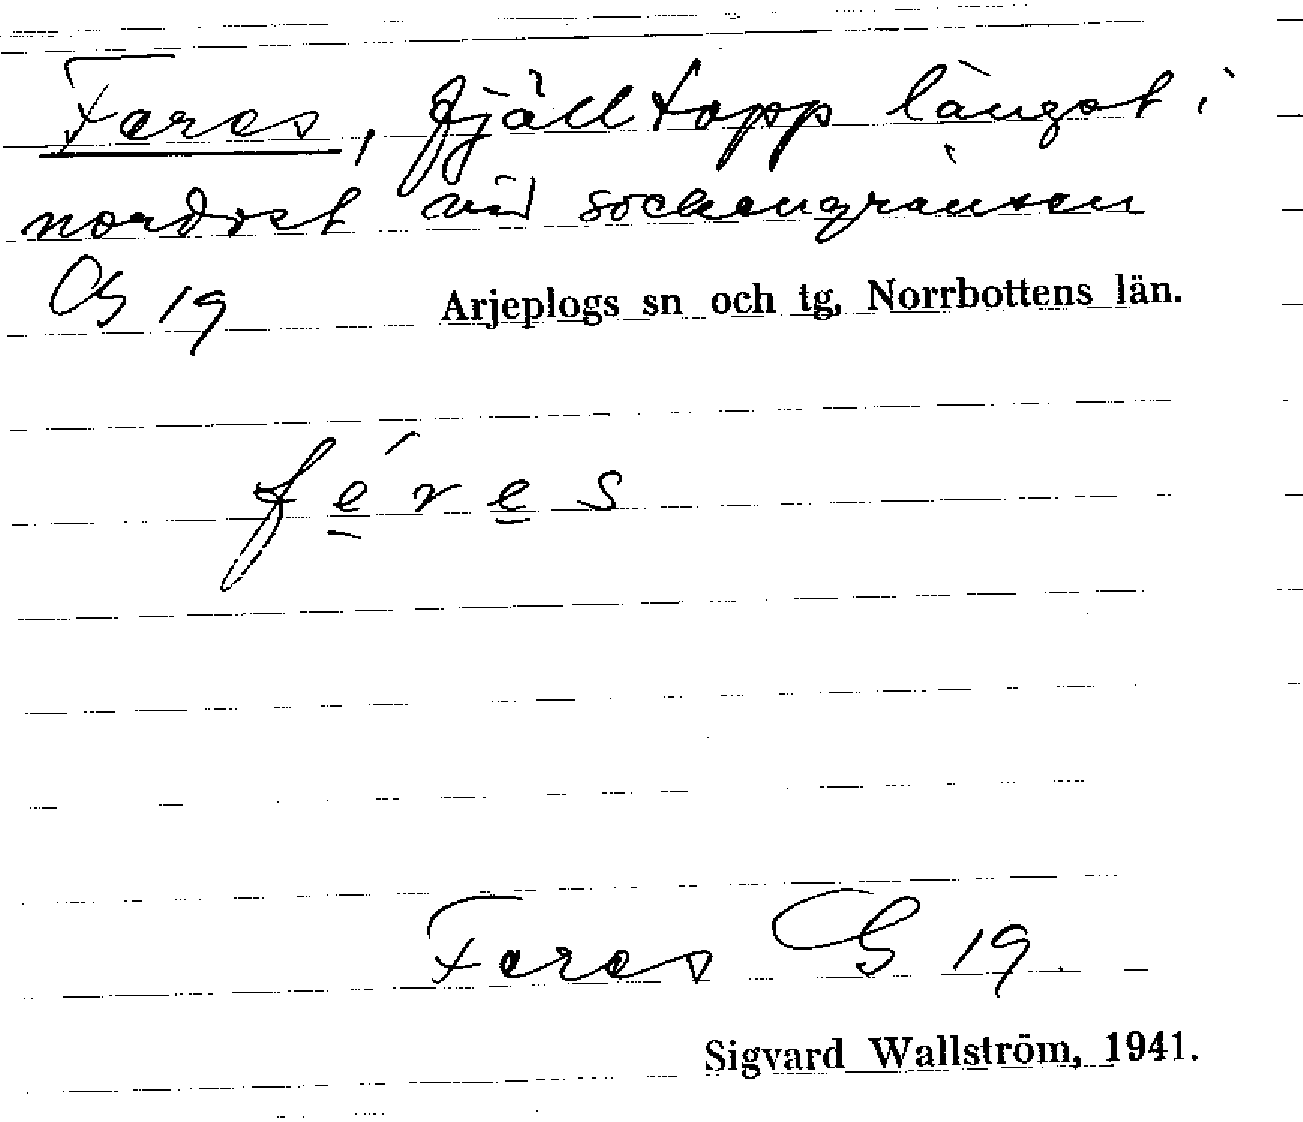 Feres, fjälltopp längst i
nordost vid sockengränsen
GS 19 Arjeplogs sn och tg, Norrbottens län.
féres
Feres GS 19
Sigvard Wallström, 1941.